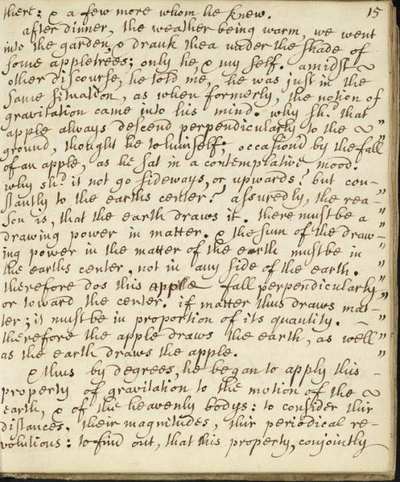 there: & a few more whom he knew. 15
after dinner, the weather being warm, we went
into the garden, & drank thea under the shade of
some appletrees; only he, & my self. amidst
other discourse, he told me, he was just in the
same situation, as when formerly, the notion of
gravitation came into his mind. why sh.d that
apple always descend perpendicularly to the "
ground, thought he to himself; occasion'd by the fall "
of an apple, as he sat in a contemplative mood.
why sh.d it not go sideways, or upwards? but con- "
stantly to the earths center? assuredly, the rea- "
son is, that the earth draws it. there must be a "
drawing power in matter. & the sum of the draw- "
ing power in the matter of the earth must be in "
the earths center, not in any side of the earth. "
therefore dos this apple fall perpendicularly "
or toward the center. if matter thus draws mat- "
ter; it must be in proportion of its quantity. "
therefore the apple draws the earth, as well "
as the earth draws the apple.
& thus by degrees, he began to apply this
property of gravitation to the motion of the
earth, & of the heavenly bodys: to consider thir
distances, their magnitudes, thir periodical re-
volutions: to find out, that this property, conjointly